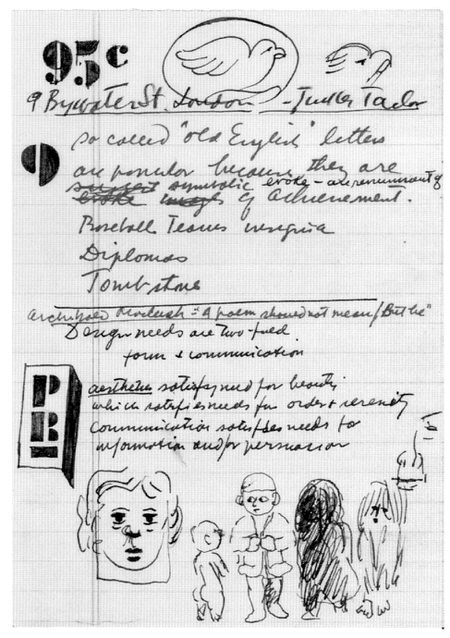 95c
9 Bywater St. London - Tinker Tailor
so called "old English" letters
9
are popular because they are
suggest symbolic evoke - are reminiscent of
evoke images of achievement.
Baseball Teams insignia
Diplomas
Tombstone
Archibald MacLeish = "A poem should not mean/But be"
Design needs are two-fold
form & communication
PB
aesthetics satisfy need for beauty
which satisfies needs for order & serenity
communication satisfies needs for
information and/or persuasion